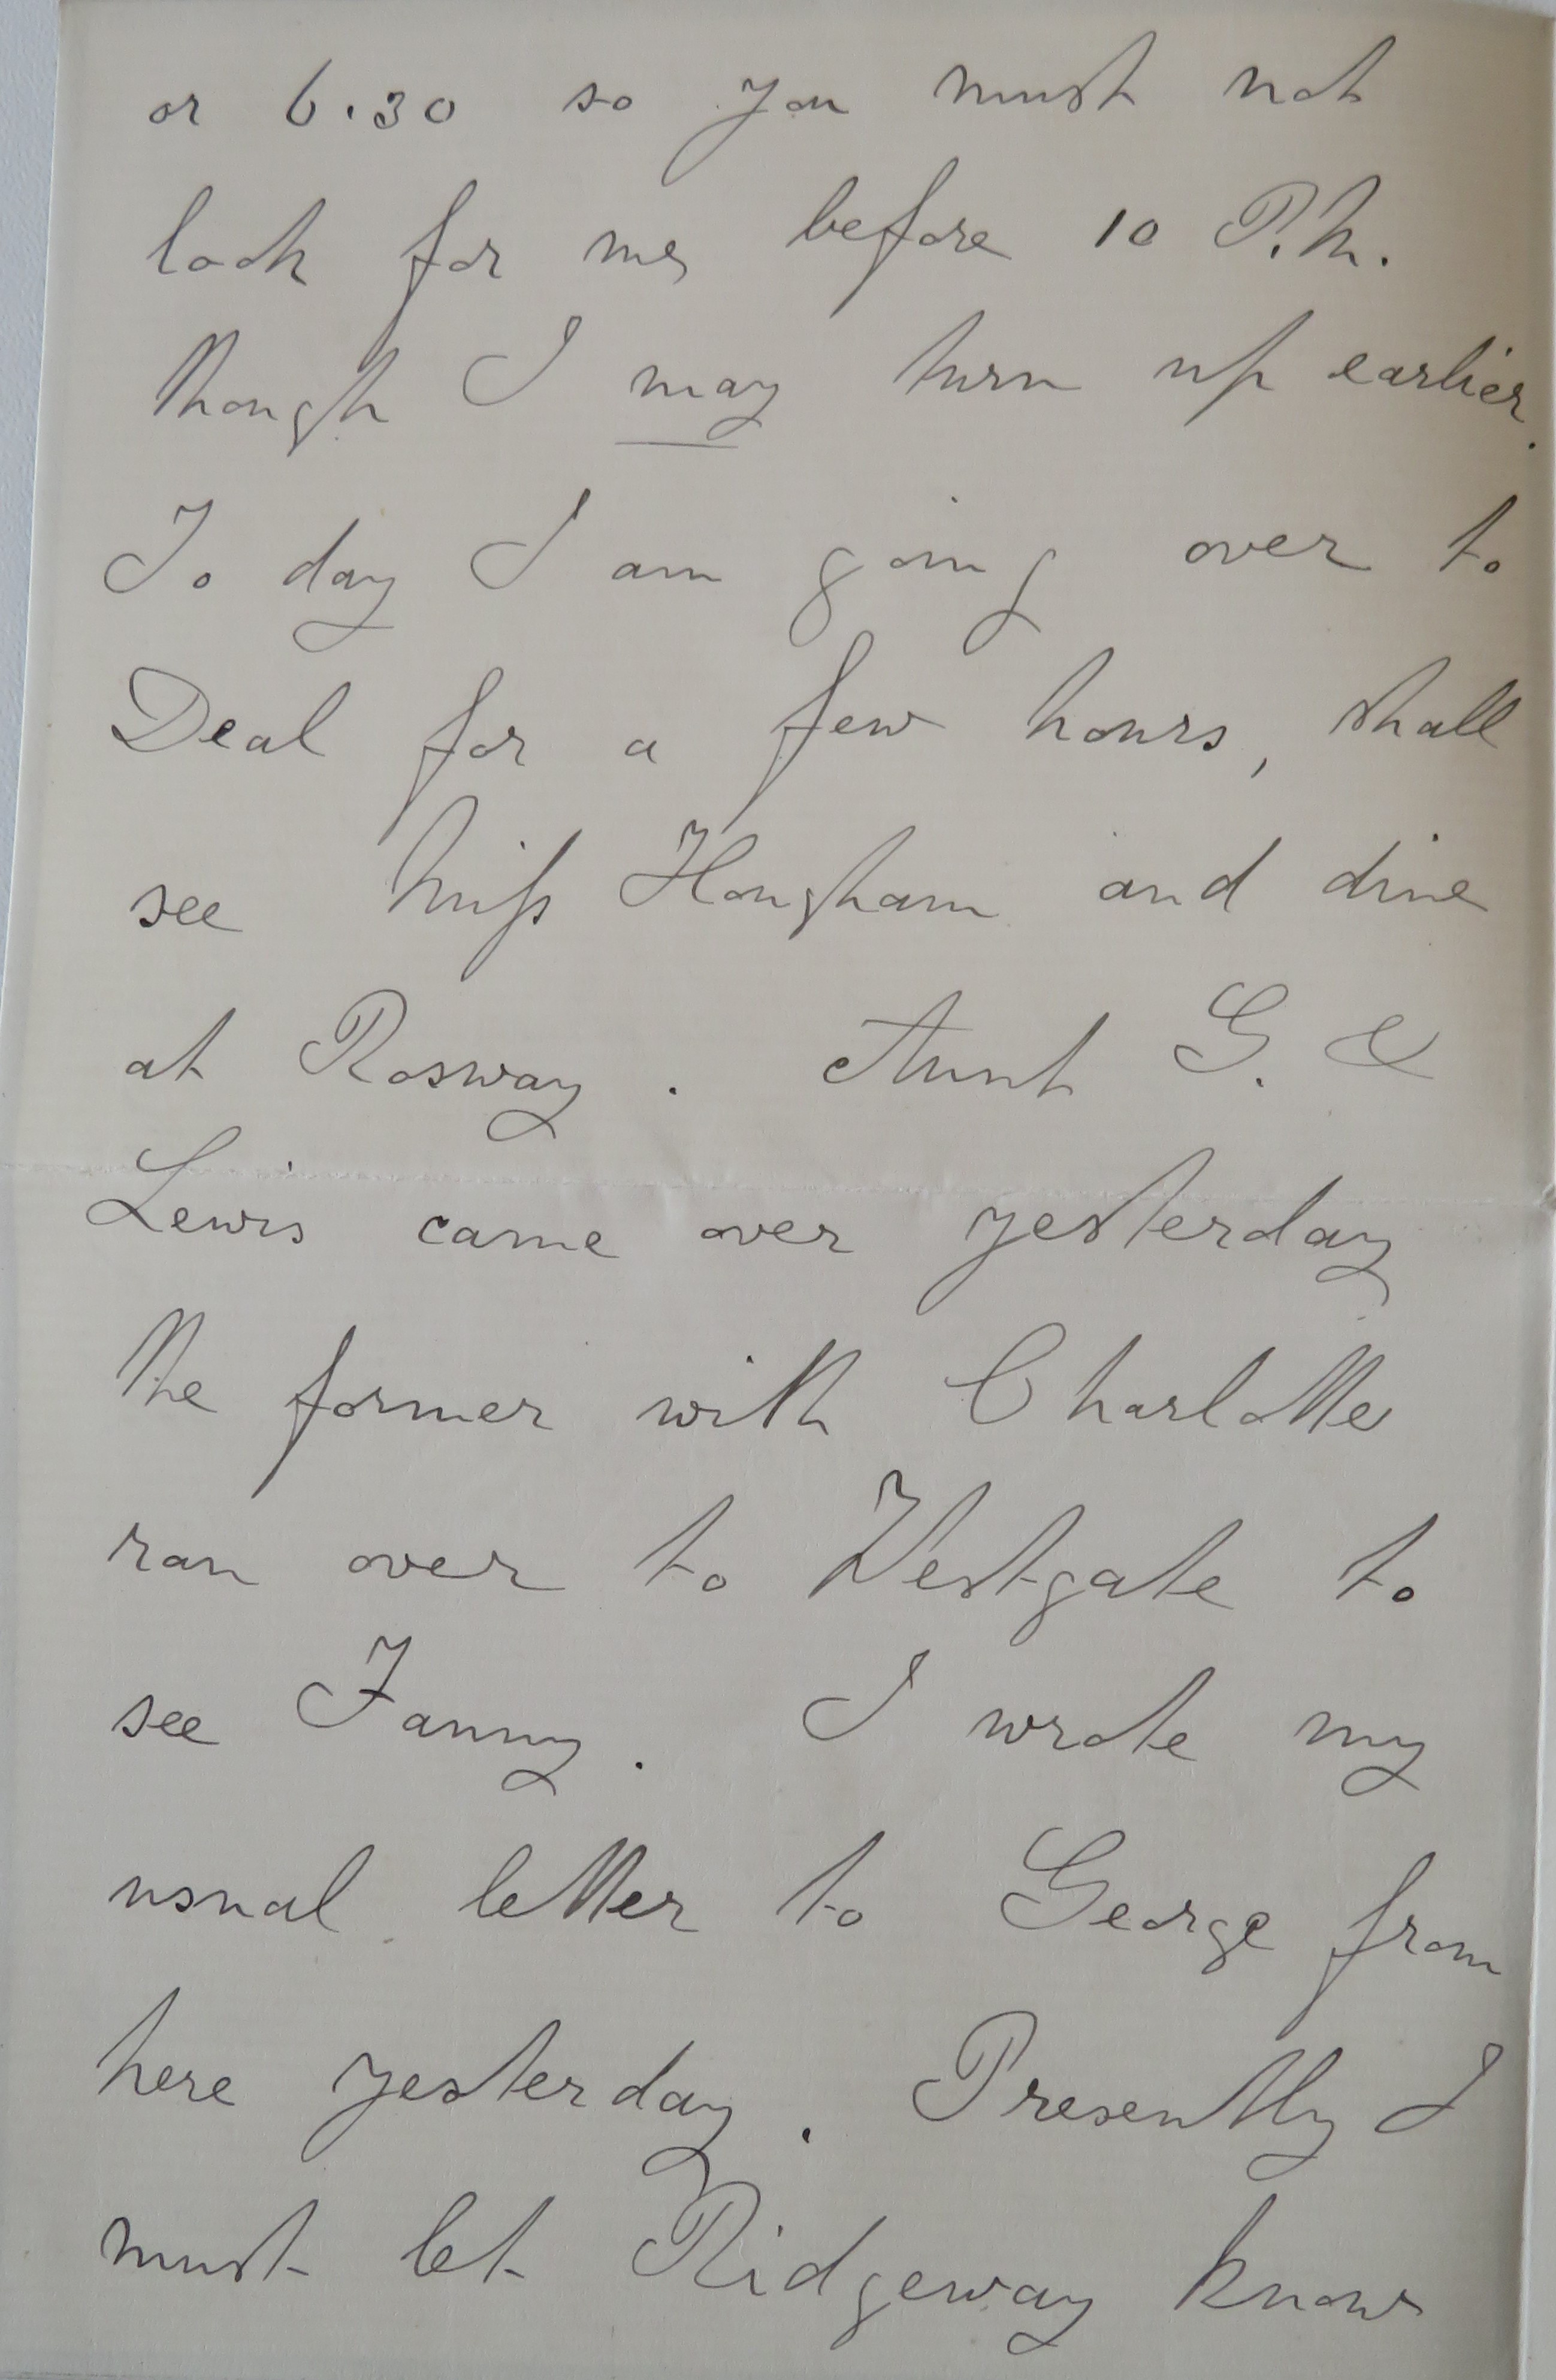 or 6.30 so you must not
look for me before 10 P.M.
though I may turn up earlier.
To day I am going over to
Deal for a few hours, shall
see Miss Hougham and dine
at Rosway. Aunt G. &
Lewis came over yesterday
the former with Charlotte
ran over to Westgate to
see Fanny. I wrote my
usual letter to George from
here yesterday. Presently I
must let Ridgeway know